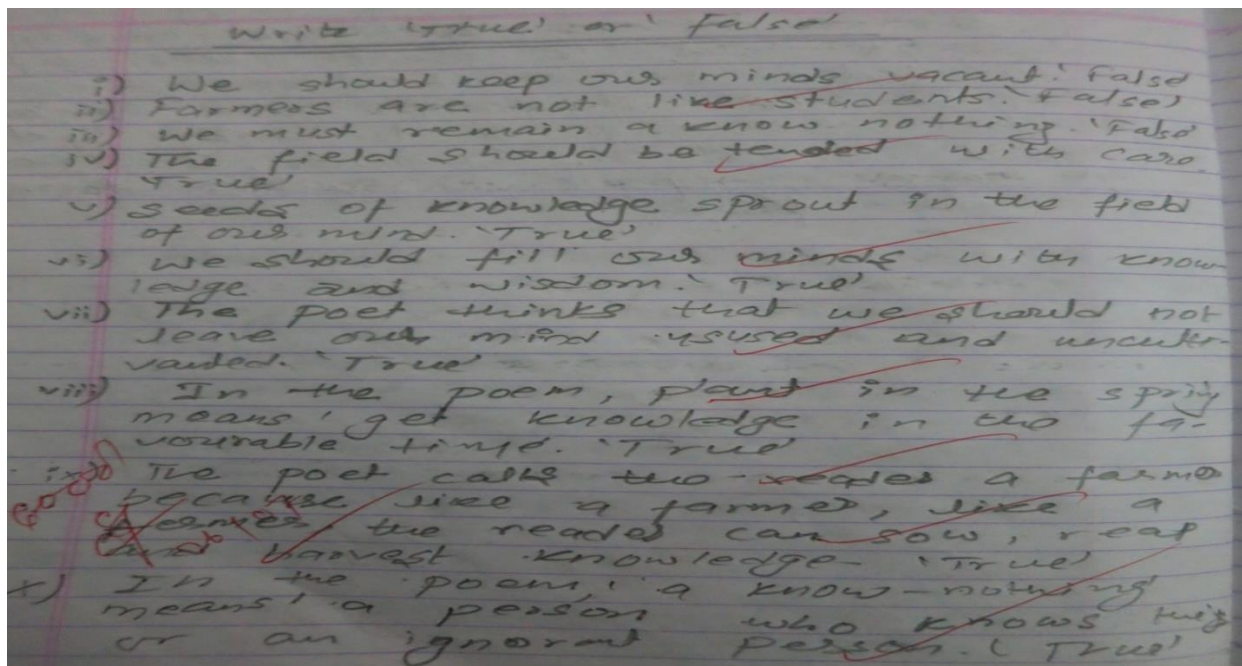 Write 'True' or 'False'
i) We should keep our minds vacant. 'False
ii) Farmers are not like students. 'False)
iii) We must remain a know nothing. 'False
iv) The field should be tended with care.
'True'
v) Seeds of knowledge sprout in the field
of our mind. 'True'
vi) We should fill our minds with know-
ledge and wisdom. 'True'
vii) The poet thinks that we should not
leave our mind usused and uncult-
vated. 'True'
viii) In the poem, plant in the sprig
means 'get knowledge in the fa-
vourable time. 'True'
ix) The poet calls the reader a farmer
because like a farmer, like a
the reader can sow, reap
and harvest knowledge- 'True'
x) In the poem, 'a know-nothing
means 'a person who knows
or an ignorant person. ( True'
Good